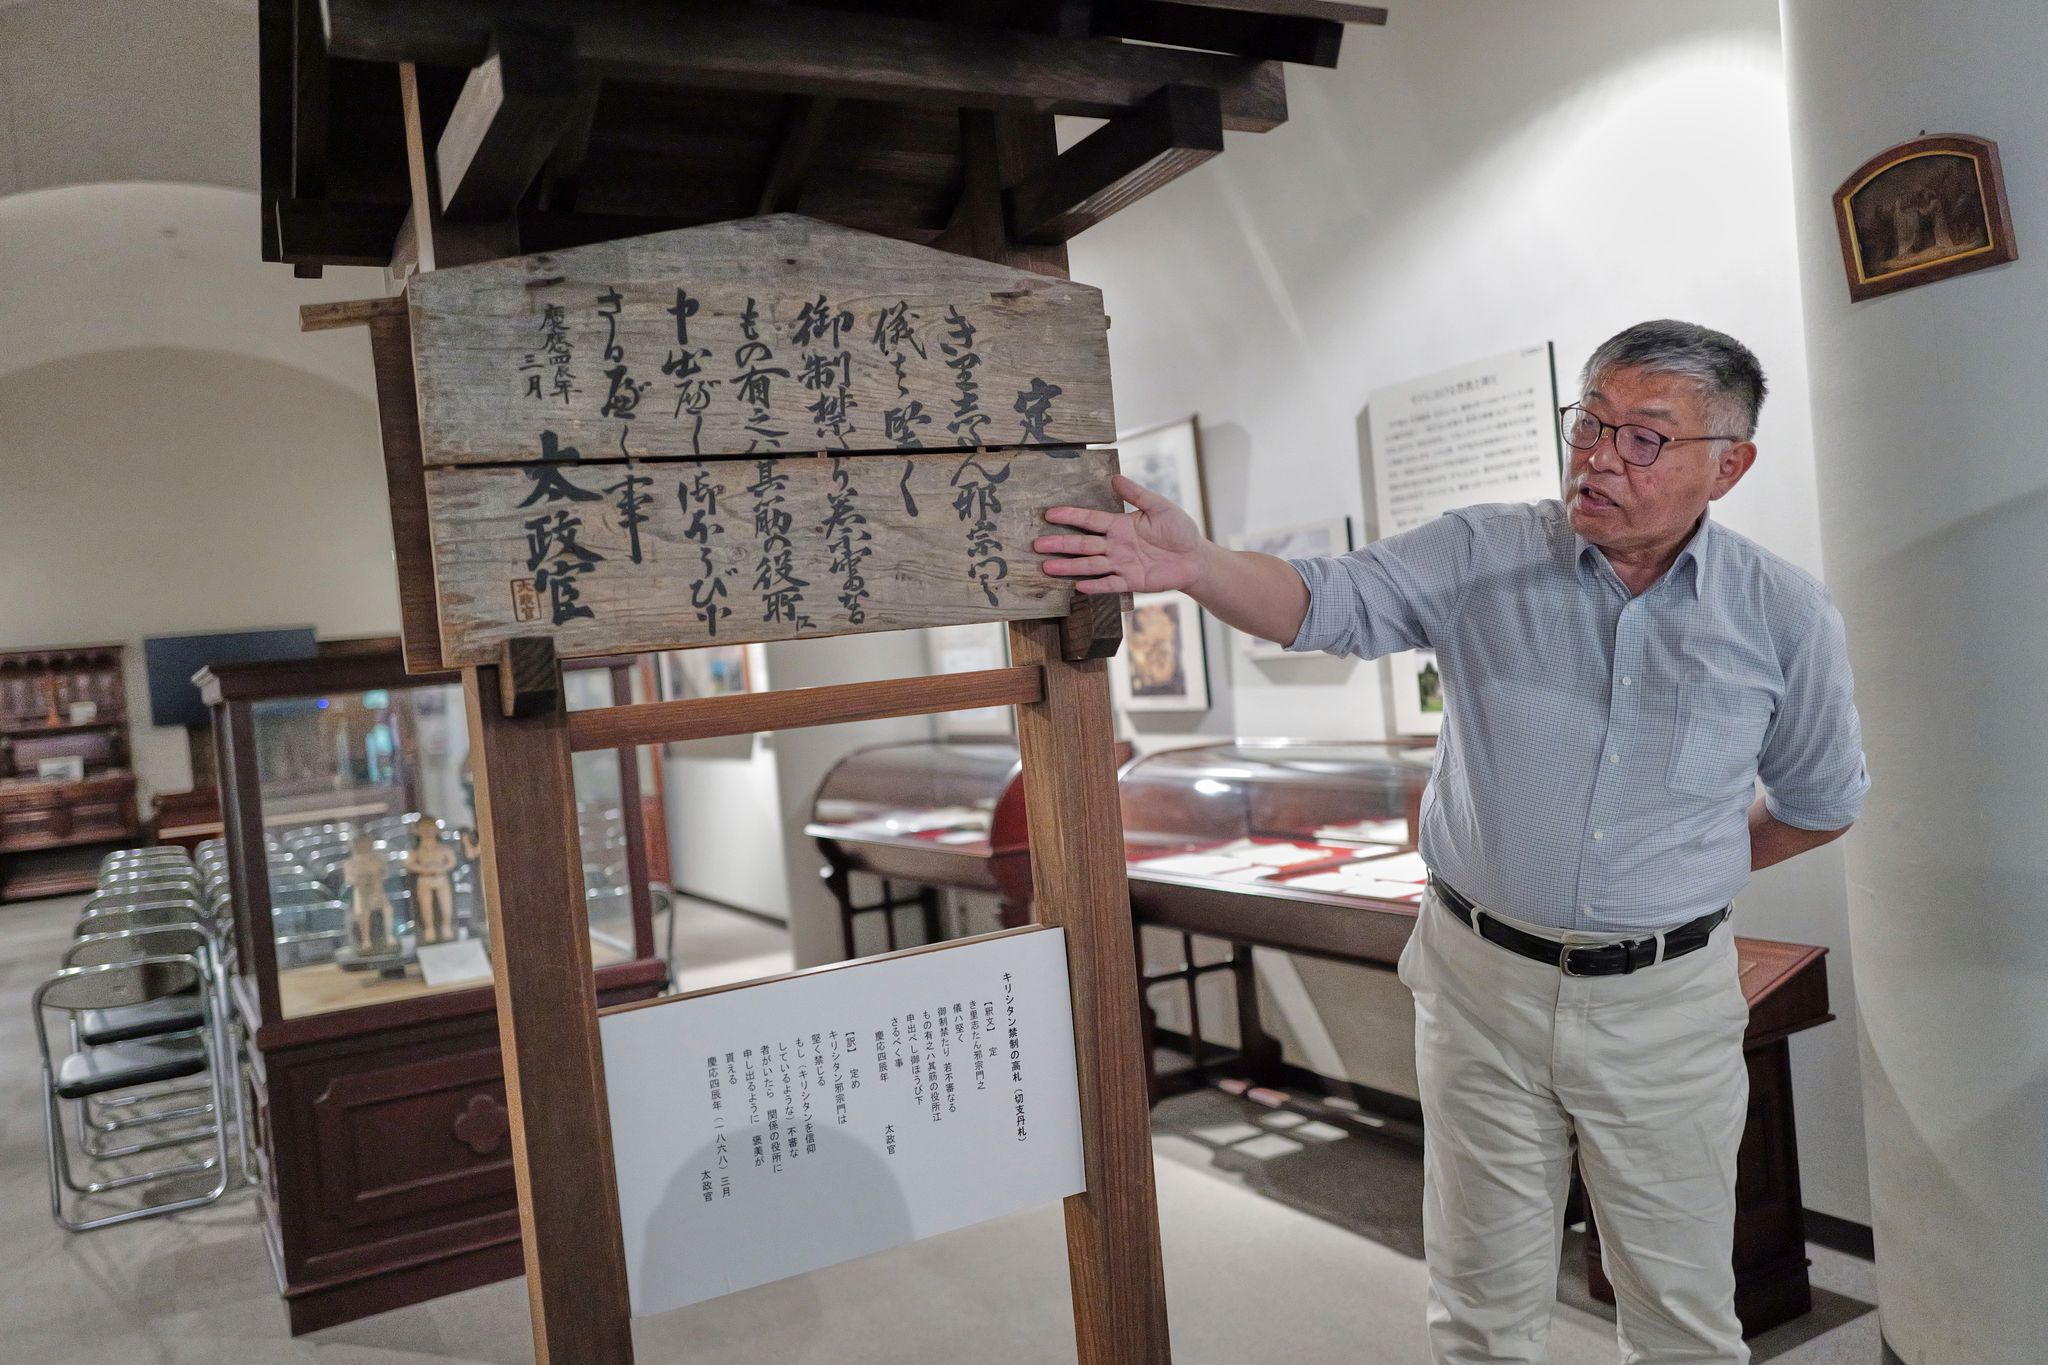 定
き里志たん邪宗門之
儀ハ堅く
御制禁たり若不審なる
もの有之ハ其筋の役所江
申出べし御ほうび下
さるべく事
慶應四辰年
三月
太政官
太政官
キリシタン禁制の高札(切支丹札)
【釈文】 定
き里志たん邪宗門之
儀ハ堅く
御制禁たり 若不審なる
もの有之ハ其筋の役所江
申出べし御ほうび下
さるべく事
慶応四辰年 太政官
【訳】 定め
キリシタン邪宗門は
堅く禁じる
もし(キリシタンを信仰
しているような)不審な
者がいたら 関係の役所に
申し出るように 褒美が
貰える
慶応四辰年(一八六八)三月
太政官